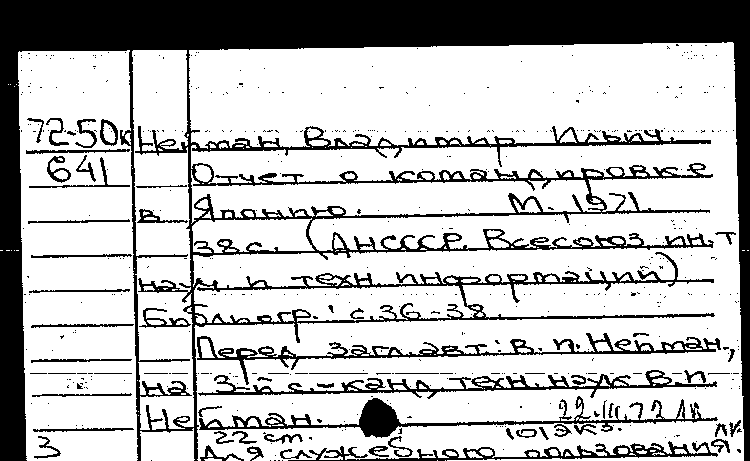 72-50к Нейман, Владимир Ильич.
641 Отчет о командировке
в Японию. М., 1971.
38 с. (АН СССР. Всесоюз. ин-т
науч. и техн. информации)
Библиогр.: с. 36-38.
Перед загл. авт.: В. И. Нейман,
на 3-й с. - канд. техн. наук В. И.
Нейман. 22.III.72 ЛК
22 ст. 101экз. ЛК
3 Для служебного пользования.